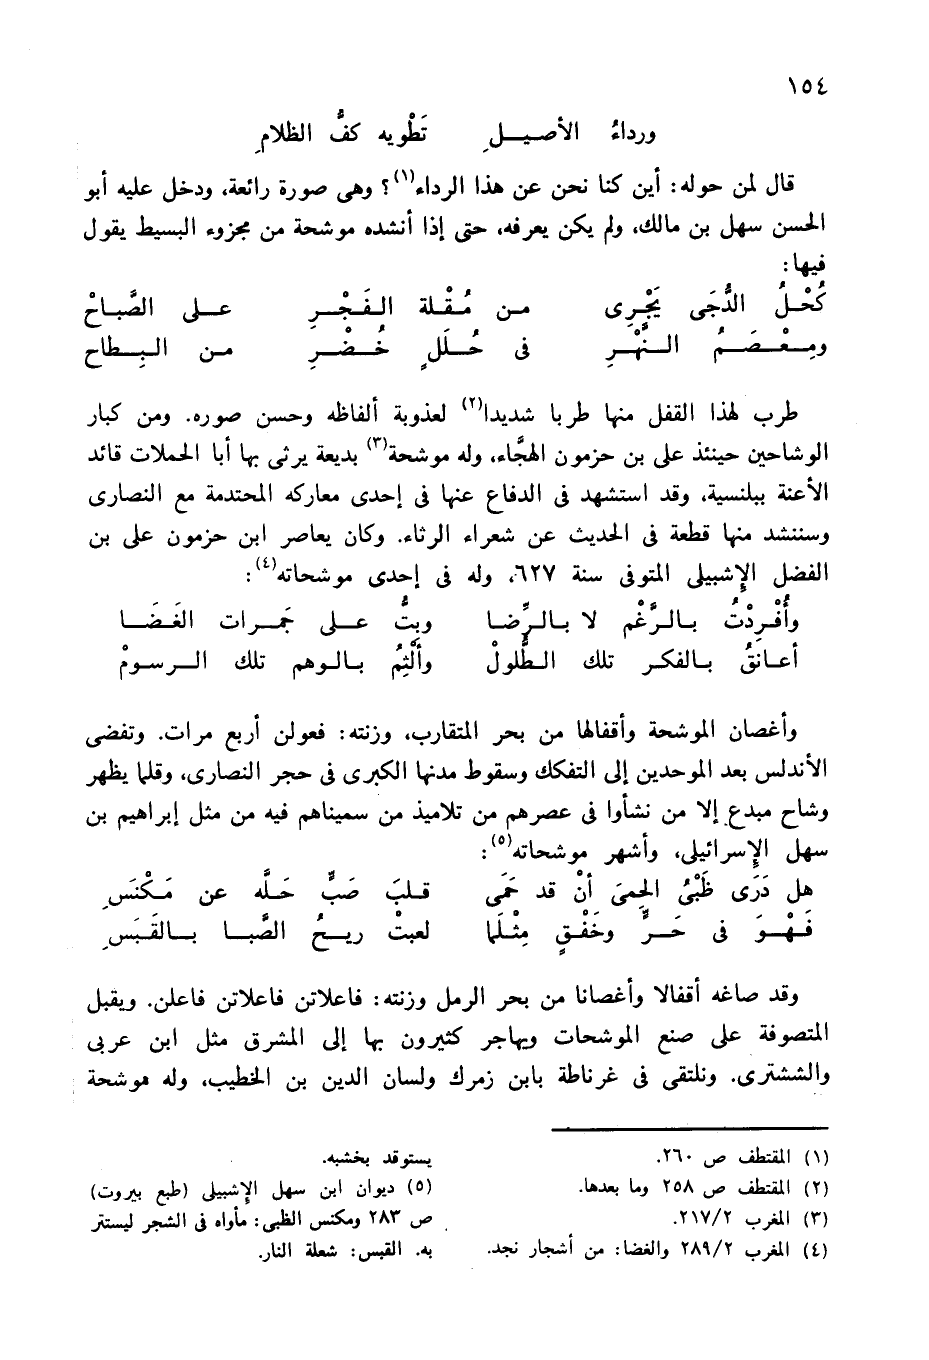 ١٥٤
ورداءُ الأصيلِ تَطْويه كفُّ الظلامِ
قال لمن حوله: أين كنا نحن عن هذا الرداء(١)؟ وهى صورة رائعة، ودخل عليه أبو
الحسن سهل بن مالك، ولم يكن يعرفه، حتى إذا أنشده موشحة من مجزوء البسيط يقول
فيها:
كُحْلُ الدُّجَى يَجْرِى من مُقْلة الفَجْرِ على الصَّباحْ
ومِعْصَمُ النَّهْرِ فى حُلَلٍ خُضْرِ من البِطاح
طرب لهذا القفل منها طربا شديدا(٢) لعذوبة ألفاظه وحسن صوره. ومن كبار
الوشاحين حينئذ على بن حزمون الهجَّاء، وله موشحة(٣) بديعة يرثى بها أبا الحملات قائد
الأعنة ببلنسية، وقد استشهد فى الدفاع عنها فى إحدى معاركه المحتدمة مع النصارى
وسننشد منها قطعة فى الحديث عن شعراء الرثاء. وكان يعاصر ابن حزمون على بن
الفضل الإشبيلى المتوفى سنة ٦٢٧، وله فى إحدى موشحاته(٤):
وأُفْرِدْتُ بالرَّغْم لا بالرِّضا وبتُّ على جَمرات الغَضَا
أعانقُ بالفكر تلك الطُّلولْ وألْثِمُ بالوهم تلك الرسومْ
وأغصان الموشحة وأقفالها من بحر المتقارب، وزنته: فعولن أربع مرات. وتفضى
الأندلس بعد الموحدين إلى التفكك وسقوط مدنها الكبرى فى حجر النصارى، وقلما يظهر
وشاح مبدع إلا من نشأوا فى عصرهم من تلاميذ من سميناهم فيه من مثل إبراهيم بن
سهل الإسرائيلى، وأشهر موشحاته(٥):
هل دَرَى ظَبْىُ الحِمىَ أنْ قد حَمَى قلبَ صَبٍّ حَلَّه عن مَكْنَسِ
فَهْوَ فى حَرٍّ وخَفْقٍ مِثْلَما لعبتْ ريحُ الصَّبا بالقَبَسِ
وقد صاغه أقفالا وأغصانا من بحر الرمل وزنته: فاعلاتن فاعلاتن فاعلن. ويقبل
المتصوفة على صنع الموشحات ويهاجر كثيرون بها إلى المشرق مثل ابن عربى
والششترى. ونلتقى فى غرناطة بابن زمرك ولسان الدين بن الخطيب، وله موشحة
(١) المقتطف ص ٢٦٠.
(٢) المقتطف ص ٢٥٨ وما بعدها.
(٣) المغرب ٢/٢١٧.
(٤) المغرب ٢/٢٨٩ والغضا: من أشجار نجد.
يستوقد بخشبه.
(٥) ديوان ابن سهل الإشبيلى (طبع بيروت)
ص ٢٨٣ ومكنس الظبى: مأواه فى الشجر ليستتر
به. القبس: شعلة النار.